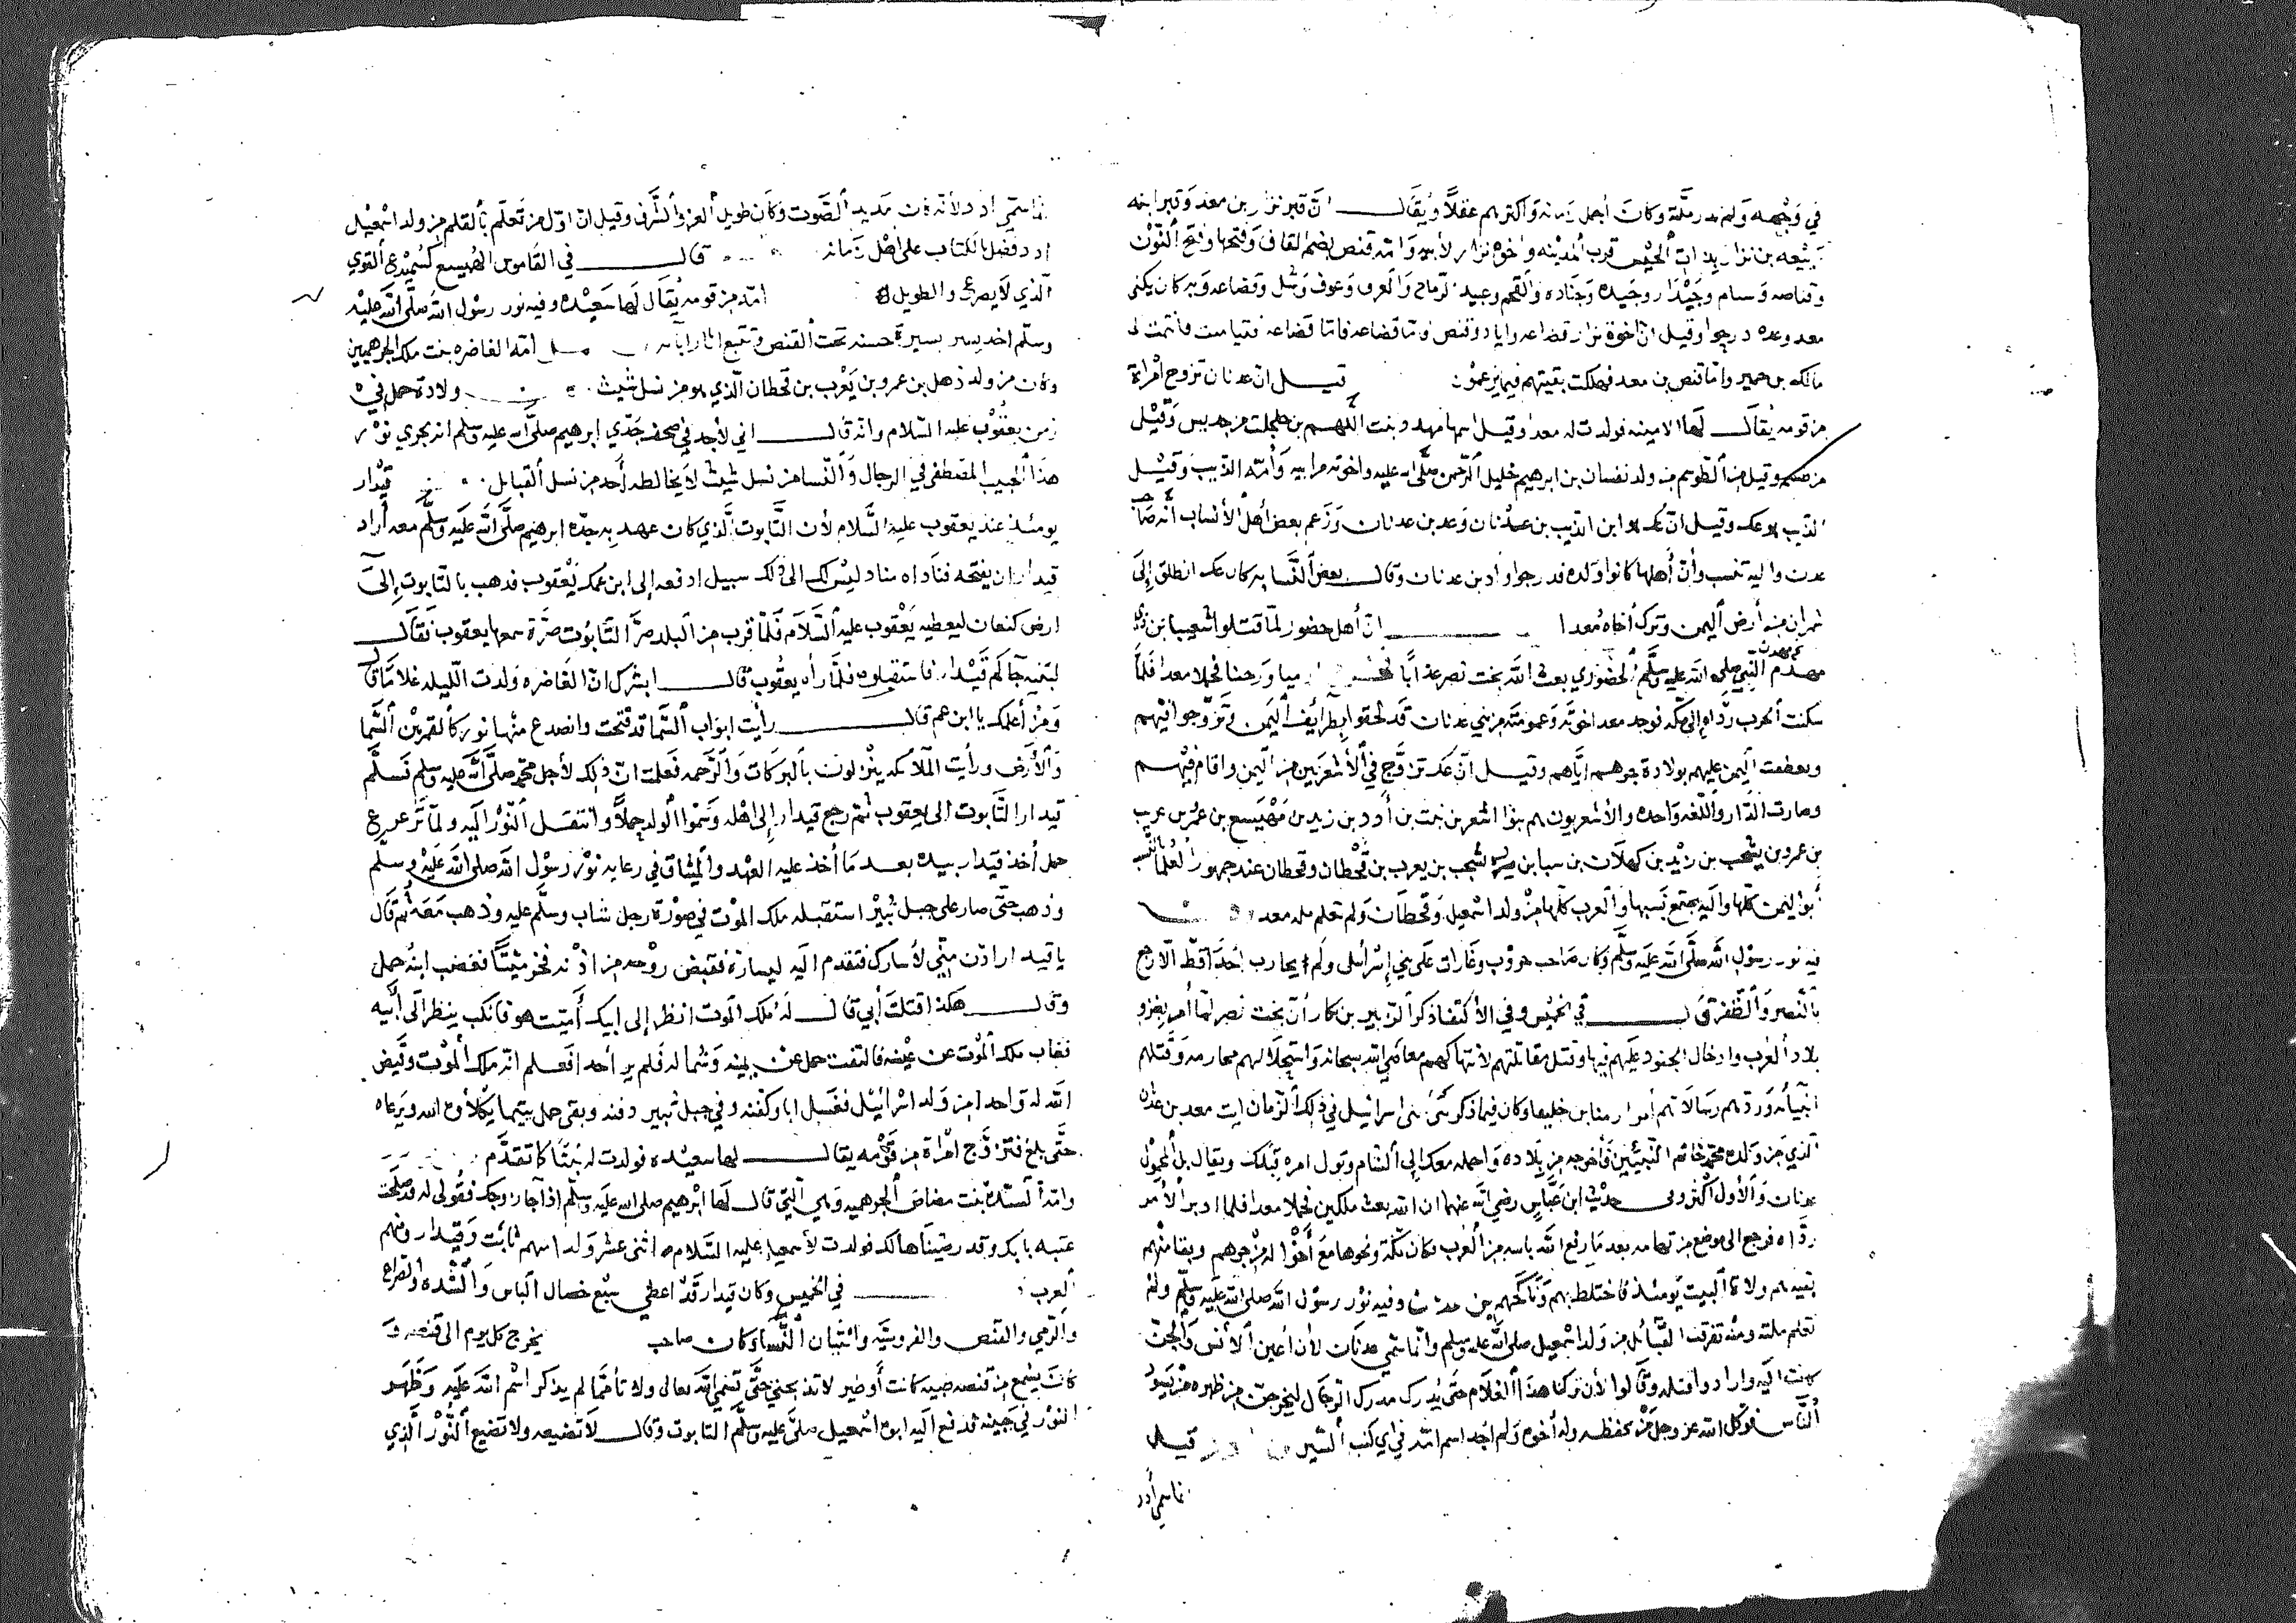 في وجهه ولم يدر ملته وكان أجمل زمانه وأكثرهم عقلاً ويقال ان قبر نزار بن معد وقبر ابنه
ربيعه بن نزار بذات الجيش قرب المدينه واخوة نزار لأبيه وامه قنص بضم القاف وفتحها وفتح النون
وقناصه وسام وحيدار وحيده وجناده والقحم وعبيد الرماح والعرف وعوف وشل وقضاعه وبه كان يكنى
معد وعده درجوا وقيل ان اخوة نزار قضاعه واياد وقنص فاما قضاعه فتيامنت فانتمت الى
مالك بن حمير واما قنص بن معد فهلكت بقيتهم فيما يزعمون قيل ان عدنان تزوج امرأة
من قومه يقال لها الامينه فولدت له معدا وقيل اسمها مهدد بنت اللهم بن جلجلت من جديس وقيل
من طسم وقيل من الطوسم من ولد نفسان بن ابرهيم خليل الرحمن صلى الله عليه واخوته من ابيه وأمه الذيب وقيل
الذيب هو عك وقيل ان عك هو ابن الذيب بن عدنان وعدن بن عدنان وزعم بعض أهل الأنساب أنه صاحب
عدن واليه تنسب وأن أهلها كانوا ولده فدرجوا وأد بن عدنان وقال بعض النسابه كان عك انطلق إلى
نجران من أرض اليمن وترك أخاه معدا ان أهل حضور لما قتلوا شعيبا بن ذي
مهدم النبي صلى الله عليه وسلم الحضوري بعث الله بخت نصر عذابا ارميا وبرخيا فحملا معدا فلما
سكنت الحرب رداه إلى مكه فوجد معد اخوته وعمومته من بني عدنان قد لحقوا بطوائف اليمن وتزوجوا فيهم
وتعطفت اليمن عليهم بولادة جرهم اياهم وقيل ان عك تزوج في الأشعريين من اليمن واقام فيهم
وصارت الدار واللغه واحده والأشعريون هم بنوا اشعر بن نبت بن أدد بن زيد بن مهيسع بن عمر بن عريب
بن عمرو بن يشجب بن زيد بن كهلان بن سبا بن يشجب بن يعرب بن قحطان وقحطان عند جمهور العلما بالنسب
أبو اليمن كلها واليه يجتمع نسبها والعرب كلها من ولد اسمعيل وقحطان ولم تعلم مله معد
فيه نور رسول الله صلى الله عليه وسلم وكان صاحب حروب وغارات على بني إسرائيل ولم يحارب أحدا قط الا رجع
بالنصر والظفر قال في الخميس وفي الاكتفا ذكر الزبير بن بكار أن بخت نصر لما أمر بغزو
بلاد العرب وادخال الجنود عليهم فيها وقتل مقاتلتهم لانتهاكهم معاصي الله سبحانه واستحلالهم محارمه وقتلهم
انبيأه وردهم رسالاتهم أمر ارميا بن خلقيا وكان فيما ذكر نبي بني اسرائيل في ذلك الزمان ايت معد بن عدنان
الذي من ولده محمد خاتم النبيئين فأخرجه من بلاده واحمله معك إلى الشام وتول امره قبلك ويقال بل المحمول
عدنان والأول أكثر وفي حديث ابن عباس رضي الله عنهما ان الله بعث ملكين فحملا معدا فلما ادبر الأمر
رداه فرجع الى موضعه من تهامه بعد ما رفع الله بأسه من العرب فكان بمكة ونحوها مع أخواله من جرهم وبها منهم
بقيه هم ولاة البيت يومئذ فاختلط بهم وناكحهم وفيه نور رسول الله صلى الله عليه وسلم ولم
تعلم ملته ومنه تفرقت القبائل من ولد اسمعيل صلى الله عليه وسلم وانما سمي عدنان لأن أعين الأنس والجن
كانت اليه وارادوا قتله وقالوا لأن تركنا هذا الغلام حتى يدرك مدرك الرجال ليخرجن من ظهره من يسود
الناس فوكل الله عز وجل من يحفظه وله أخوه ولم اجد اسم امه في اي كتب السير قيل
انما سمي أدد
انما سمي أدد لأنه كان مديد الصوت وكان طويل العز والشرف وقيل ان اول من تعلم بالقلم من ولد اسمعيل
ادد ففضل بالكتاب على اهل زمانه قال في القاموس الهميسع كسميدع القوي
الذي لا يصرع والطويل امه من قومه يقال لها سعيده وفيه نور رسول الله صلى الله عليه
وسلم اخذ يسير بسيرة حسنه تحت القنص وتتبع اثار ابآئه امه الغاضره بنت ملك الجرهميين
وكان من ولد ذهل بن عمرو بن يعرب بن قحطان الذي هو من نسل شيث ولادة حمل في
زمن يعقوب عليه السلام وانه قال اني لأجد في صحف جدي ابرهيم صلى الله عليه وسلم انه يجري نور
هذا الحبيب المصطفى في الرجال والنسا من نسل شيث لا يخالطه أحد من نسل القبايل قيدار
يومئذ عند يعقوب عليه السلام لأن التابوت الذي كان عهد به جده ابرهيم صلى الله عليه وسلم معه أراد
قيدار ان يفتحه فناداه مناد ليس لك الى ذلك سبيل ادفعه إلى ابن عمك يعقوب فذهب بالتابوت إلى
ارض كنعان ليعطيه يعقوب عليه السلام فلما قرب من البلد صر التابوت صرة سمعها يعقوب فقال
لبنيه جآكم قيدار فاستقبلوه فلما رأه يعقوب قال ابشرك ان الغاضره ولدت الليله غلاما قال
ومن أعلمك يا ابن عم قال رأيت ابواب السما قد فتحت وانصدع منها نور كالقمر بين السما
والأرض ورأيت الملآئكه ينزلون بالبركات والرحمه فعلمت ان ذلك لأجل محمد صلى الله عليه وسلم فسلم
قيدار التابوت الى يعقوب ثم رجع قيدار إلى اهله وسموا الولد حملاً وانتقل النور اليه ولما ترعرع
حمل أخذ قيدار بيده بعد ما أخذ عليه العهد والميثاق في رعايه نور رسول الله صلى الله عليه وسلم
وذهب حتى صار على جبل ثبير استقبله ملك الموت في صورة رجل شاب وسلم عليه وذهب معه ثم قال
يا قيدار ادن مني لأسارك فتقدم اليه ليساره فقبض روحه من اذنه فخر ميتاً فغضب ابنه حمل
وقال هكذا قتلت أبي قال له ملك الموت انظر إلى ابيك أميت هو فانكب ينظر الى أبيه
فغاب ملك الموت عن عينه فالتفت حمل عن يمينه وشماله فلم ير أحدا فعلم انه ملك الموت وقيض
الله له واحدا من ولد اسرائيل فغسل اباه وكفنه وفي جبل ثبير دفنه وبقي حمل يتيما يكلأوه الله ويرعاه
حتى بلغ فتزوج امرأة من قومه يقال لها سعيده فولدت له نبتاً كما تقدم
وامه السيدة بنت مضاض الجرهميه وهي التي قال لها ابرهيم صلى الله عليه وسلم اذا جآ زوجك فقولي له قد صلحت
عتبه بابك وقد رضيناها لك فولدت لأسمعيل عليه السلام اثنى عشر ولدا اسهم نابت وقيدار ومنهم
العرب في الخميس وكان قيدار قد اعطى سبع خصال الباس والشده والصراع
والرمي والقنص والفروسيه واتيان النسا وكان صاحب يخرج كل يوم الى قنصه و
كان يسمع من قنصه ظبيه كانت أو طير لا تذبحني حتى تسمي الله تعالى ولا تأكل مما لم يذكر اسم الله عليه وظهر
النور في جبينه فدفع اليه ابوه اسمعيل صلى عليه وسلم التابوت وقال لا تضيعه ولا تضيع النور الذي